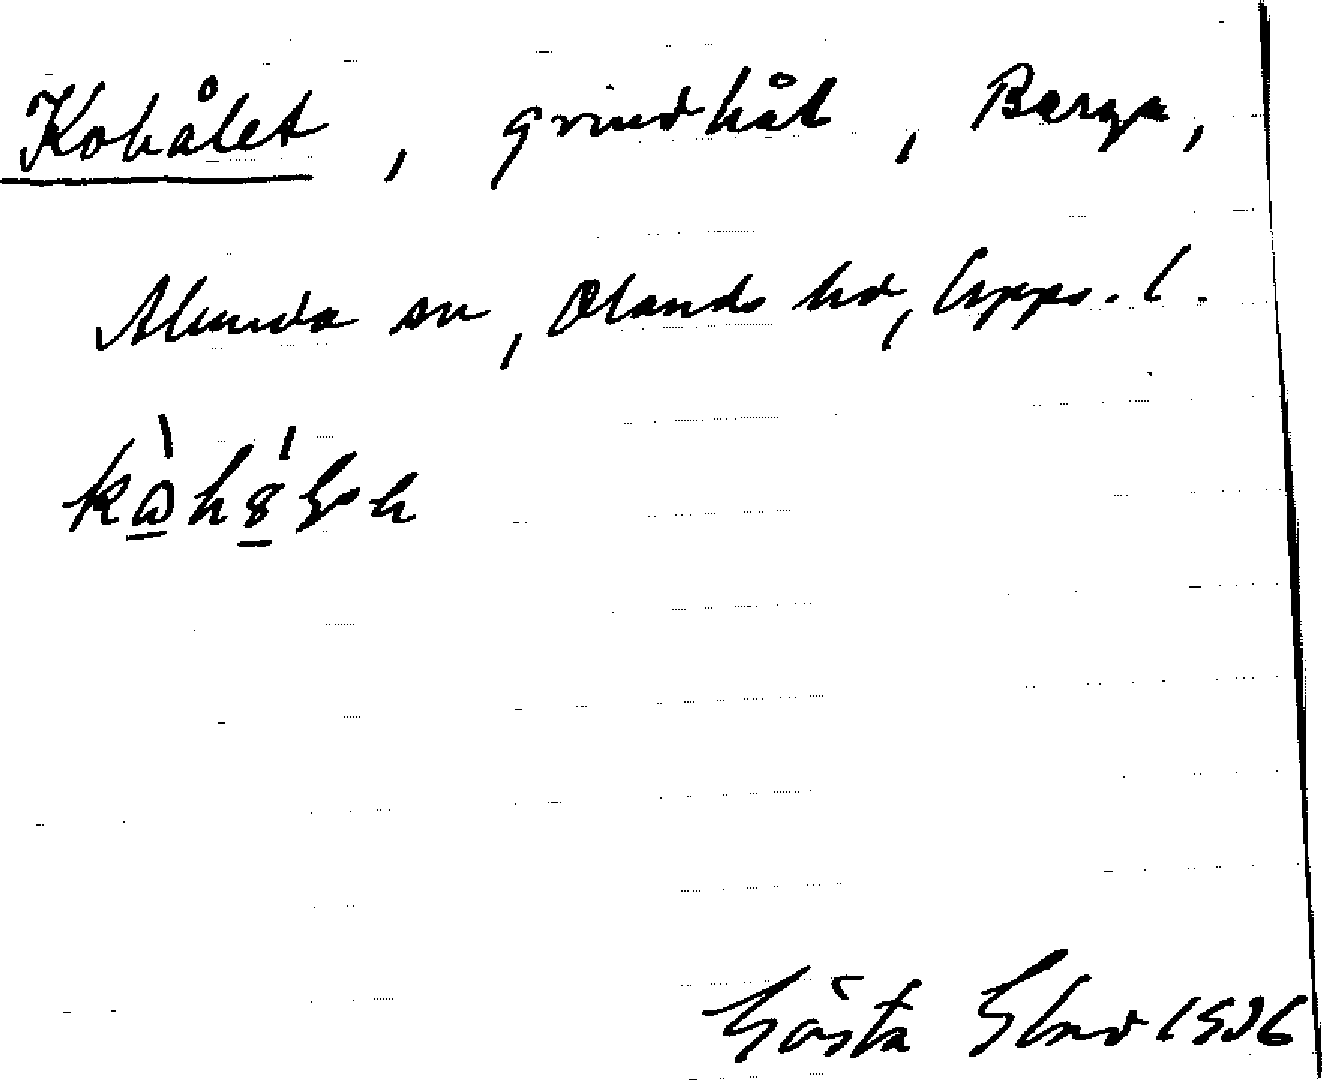 Kohålet, grindhål, Berga,
Alunda sn, Olands hd, Upps. l.
Gösta 1936